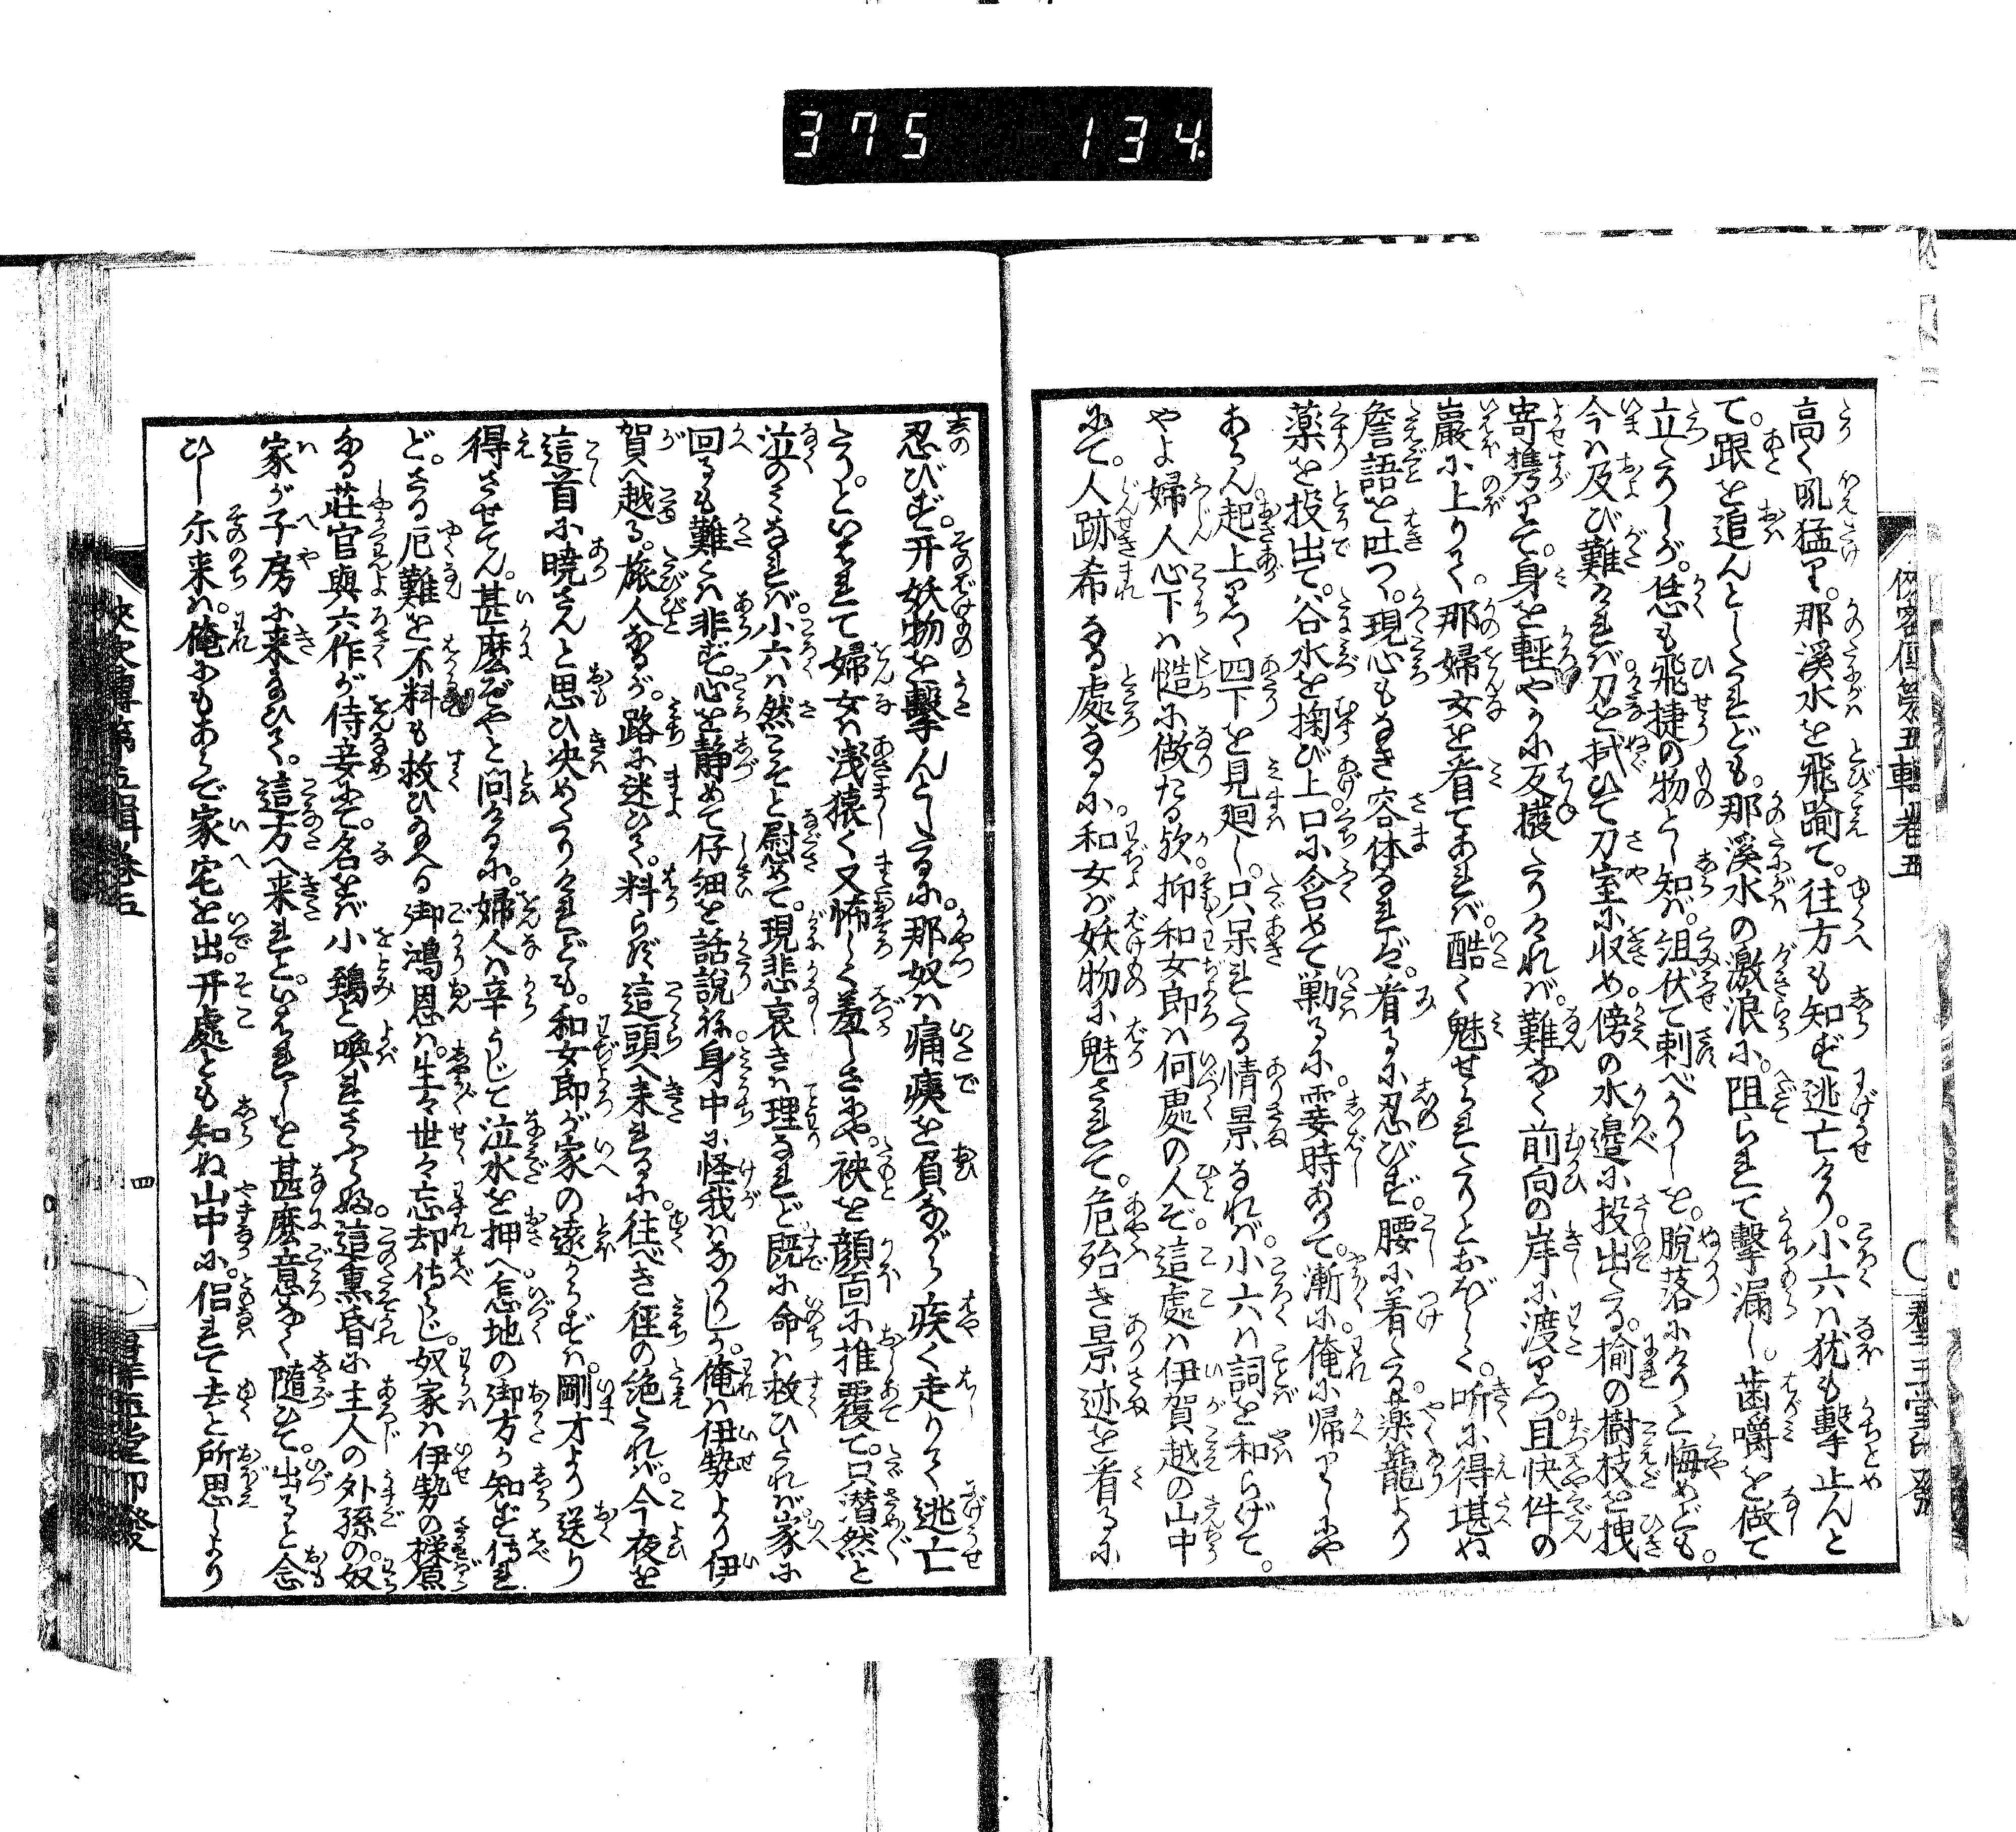 375 134
高く吼猛り。那溪水を飛踰て。往方も知ず逃亡けり。小六は犹も撃止んと
て。跟を追んとしたれども。那溪水の激浪に。阻られて撃漏し。歯嚼を做て
立たりしが。恁も飛捷の物とし知ば。沮伏て刺べかりしを。脱落にけりと悔めども。
今は及び難ければ刀を拭ひて刀室に収め。傍の水邉に投出たる。楡の樹枝を拽
寄携りて。身を軽やかに反撥たりければ。難なく前向の岸に渡りつ。且快件の
巖に上りて。那婦女を看てあれば。酷く魅せられたりとおぼしく。听に得堪ぬ
詹語を吐つ。現心もなき容体なれば。看るに忍びず。腰に着たる。薬籠より
薬を投出て。谷水を掬び上口に含めて勦るに。霎時ありて。漸に。俺に帰りしにや
あらん。起上りつゝ四下を見廻し。只呆れたる情景なれば。小六は詞を和らげて。
やよ婦人心下は慥に做たる欤。抑和女郎は何處の人ぞ。這處は伊賀越の山中
にて。人跡希なる處なるに。和女が妖物に魅されて。危殆き景迹を看るに
忍びず。开妖物を撃んとしたるに。那奴は痛痍を負ながら疾く走りて逃亡
たり。といはれて婦女は浅猿く又怖しく羞しさにや。袂を顔面に推覆て。只潜然と
泣のみなれば。小六は然こそと慰めて。現悲哀きは理なれど既に命は救ひたれば。家に
回るも難くは非ず。心を静めて仔細を話説ね。身中に怪我はなかりしか。俺は伊勢より伊
賀へ越る。旅人なるが。路に迷ひて。料らず這頭へ来れるに。往べき徑の絶たれば。今夜を
這首に暁さんと思ひ决めたりけれども。和女郎が家の遠からずは。剛才より送り
得させてん。甚麼ぞやと問けるに。婦人は辛うじて泣水を押へ怎地の御方か知ず侍れ
ど。さる厄難を不料も救ひ給へる御鴻恩は。生々世々忘却侍らじ。奴家は伊勢の樣原
なる荘官與六作が侍妾にて。名をば小鶏と喚れさふらふ。這熏昏に主人の外孫の。奴
家が子房に来給ひて。這方へ来れと。いはれしを甚麼意なく隨ひて。出ると念
ひし尓来は。俺にもあらで家宅を出。开處とも知ぬ山中に。侶れて去と所思しより
四